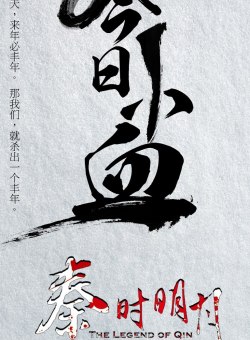 今日小血
天，来年必丰年。那我们，就杀出一个丰年。
秦时明月
THE LEGEND OF QIN